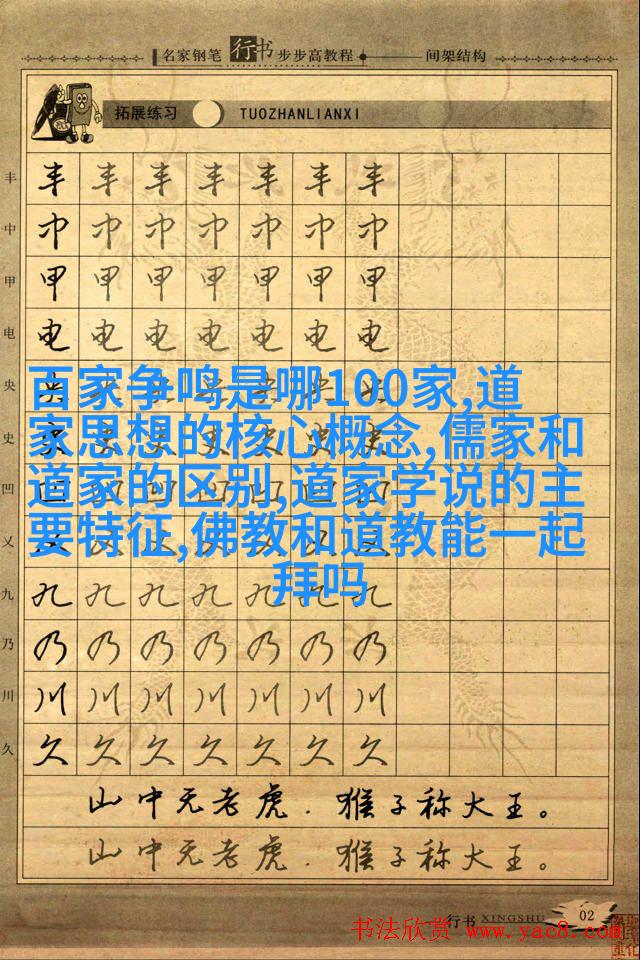 名家钢笔行书步步高教程 间架结构
拓展练习 TUOZHANLIANXI
丰 丰 丰 丰 丰 丰 丰 丰
中 中 中 中 中 中 中 中
甲 甲 甲 甲 甲 甲 甲 甲
电 电 电 电 电 电 电 电
央
百家争鸣是哪100家,道
家思想的核心概念,儒家和
道家的区别,道家学说的主
要特征,佛教和道教能一起
拜吗
史
凹
九 九 九 九 九 九 九 九
乃 乃 乃 乃 乃 乃 乃 乃
川 川 川 川 川 川 川 川
久 久 久 久 久 久 久 久
山中无老虎.猴子称大王。
山中无老虎.猴子称大王。
行书 XINGSHU 02
书法欣赏 www.yac8.com